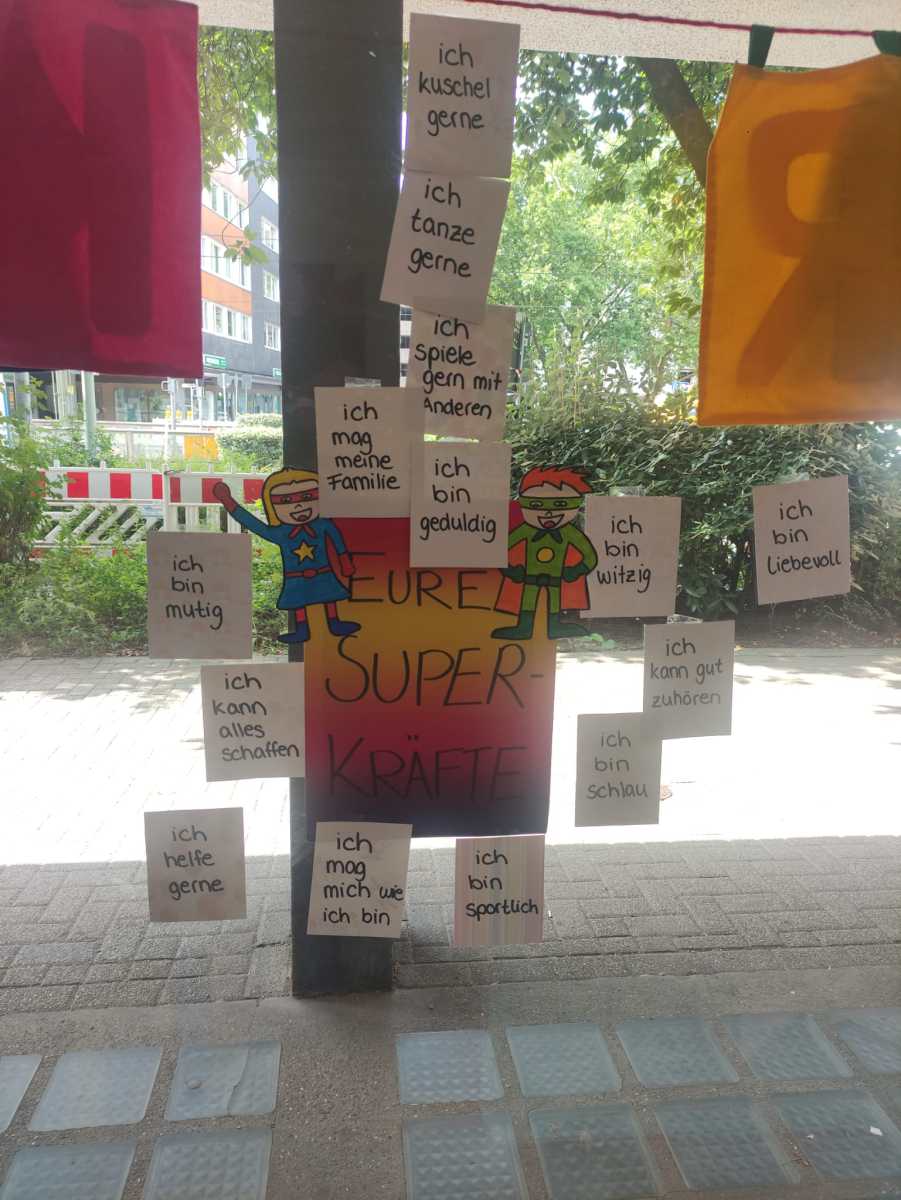 ich
kuschel
gerne
ich
tanze
gerne
ich
spiele
gern mit
Anderen
ich
mag
meine
Familie
ich
bin
geduldig
ich
bin
witzig
ich
bin
Liebevoll
ich
bin
mutig
EURE
SUPER-
KRÄFTE
ich
kann gut
zuhören
ich
kann
alles
schaffen
ich
bin
schlau
ich
helfe
gerne
ich
mag
mich wie
ich bin
ich
bin
sportlich
N
R